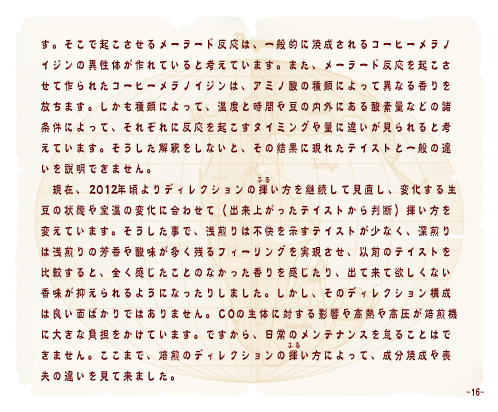 す。そこで起こさせるメーラード反応は、一般的に焼成されるコーヒーメラノ
イジンの異性体が作れていると考えています。また、メーラード反応を起こさ
せて作られたコーヒーメラノイジンは、アミノ酸の種類によって異なる香りを
放ちます。しかも種類によって、温度と時間や豆の内外にある酸素量などの諸
条件によって、それぞれに反応を起こすタイミングや量に違いが見られると考
えています。そうした解釈をしないと、その結果に現れたテイストと一般の違
いを説明できません。
ふる
現在、2012年頃よりディレクションの揮い方を継続して見直し、変化する生
豆の状態や室温の変化に合わせて（出来上がったテイストから判断）揮い方を
変えています。そうした事で、浅煎りは不快を示すテイストが少なく、深煎り
は浅煎りの芳香や酸味が多く残るフィーリングを実現させ、以前のテイストを
比較すると、全く感じたことのなかった香りを感じたり、出て来て欲しくない
香味が抑えられるようになったりしました。しかし、そのディレクション構成
は良い面ばかりではありません。COの生体に対する影響や高熱や高圧が焙煎機
に大きな負担をかけています。ですから、日常のメンテナンスを怠ることはで
きません。ここまで、焙煎のディレクションの揮い方によって、成分焼成や喪
ふる
失の違いを見て来ました。
-16-